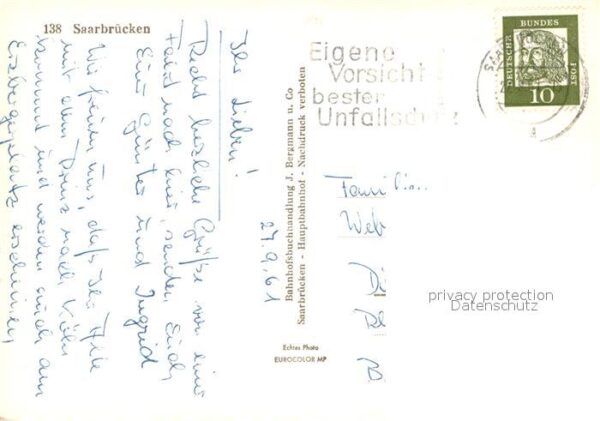 138 Saarbrücken
Ihr Lieben!
Recht herzliche Grüße von einer
Fahrt nach hier, senden Euch
Eure Günter und Ingrid
Wir freuen uns, daß Ihr Alle
mit dem Prinz nach Köln
kommt und werden auch am
Erzbergerplatz erscheinen
27.9.61
Bahnhofsbuchhandlung J. Bergmann u. Co
Saarbrücken - Hauptbahnhof - Nachdruck verboten
Echtes Photo
EUROCOLOR MP
Eigene
Vorsicht
bester
Unfallschutz
DEUTSCHE BUNDESPOST
10
Fami
Web
privacy protection
Datenschutz